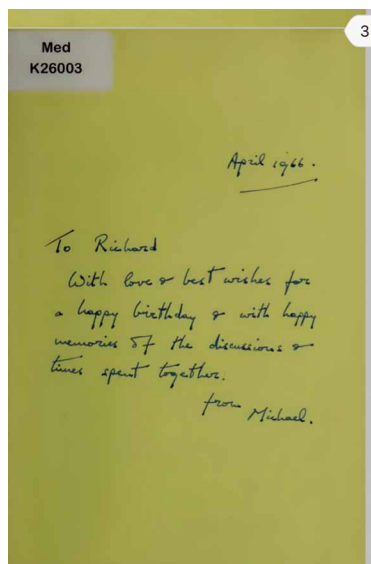 3
Med
K26003
April 1966.
To Richard
With love & best wishes for
a happy birthday & with happy
memories of the discussions &
times spent together.
from Michael.